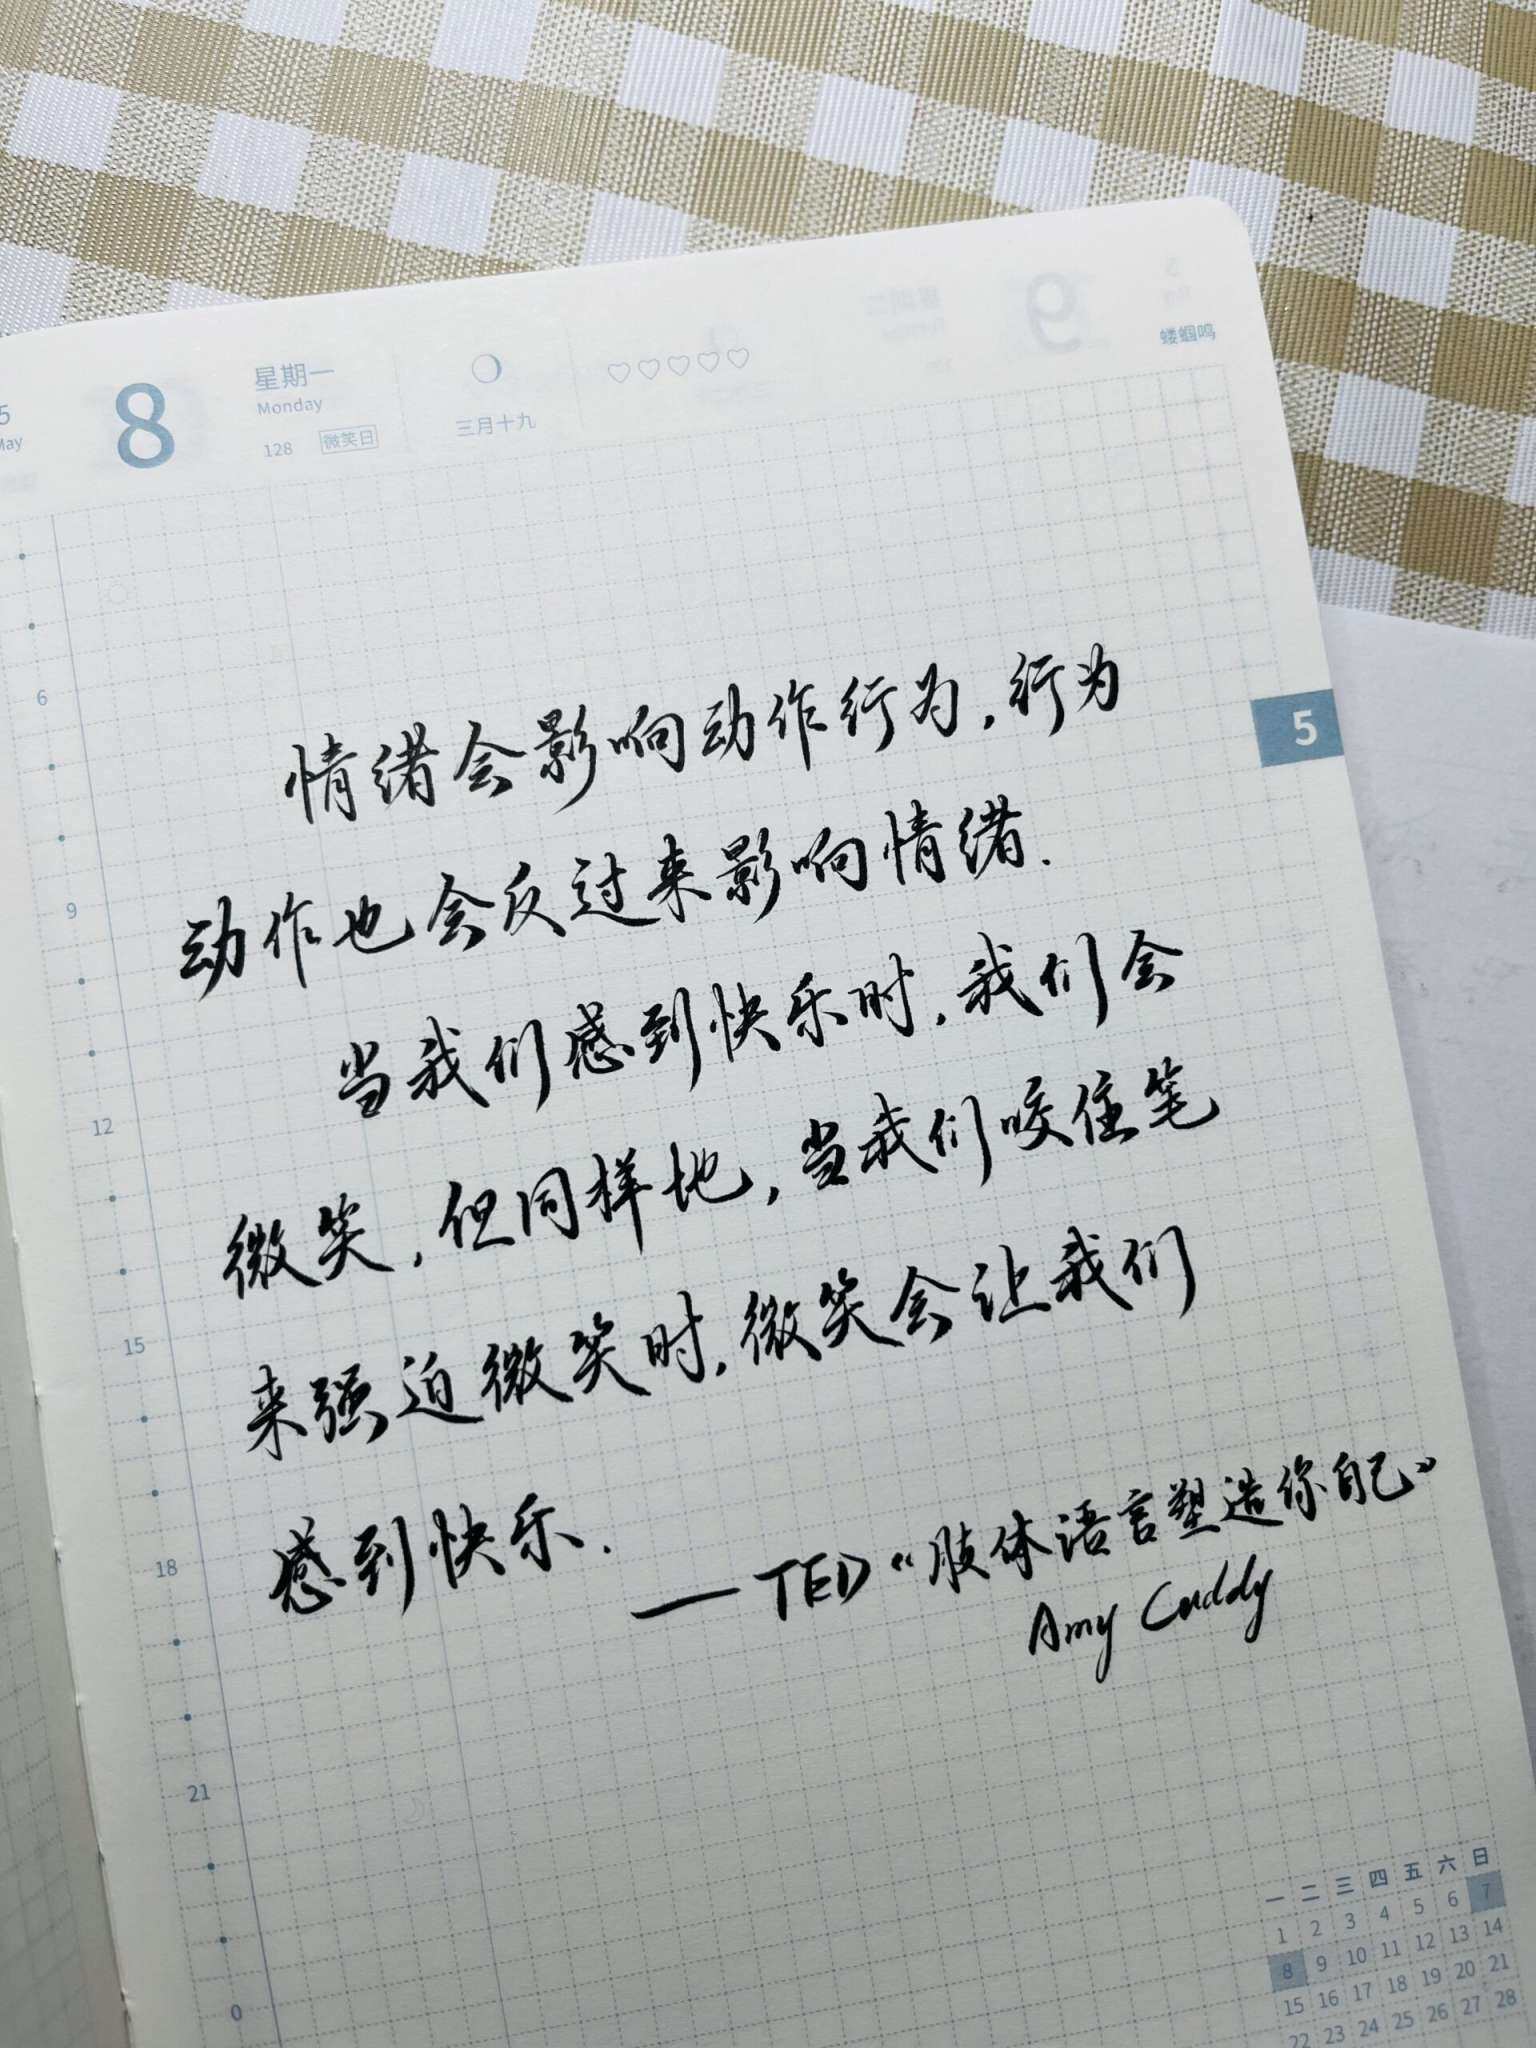 5
May
8
星期一
Monday
128 微笑日
三月十九
蝼蝈鸣
5
情绪会影响动作行为,行为
动作也会反过来影响情绪.
当我们感到快乐时,我们会
微笑,但同样地,当我们咬住笔
来强迫微笑时,微笑会让我们
感到快乐.
——TED《肢体语言塑造你自己》
Amy Cuddy
6
9
12
15
18
21
0
一 二 三 四 五 六 日
1 2 3 4 5 6 7
8 9 10 11 12 13 14
15 16 17 18 19 20 21
22 23 24 25 26 27 28